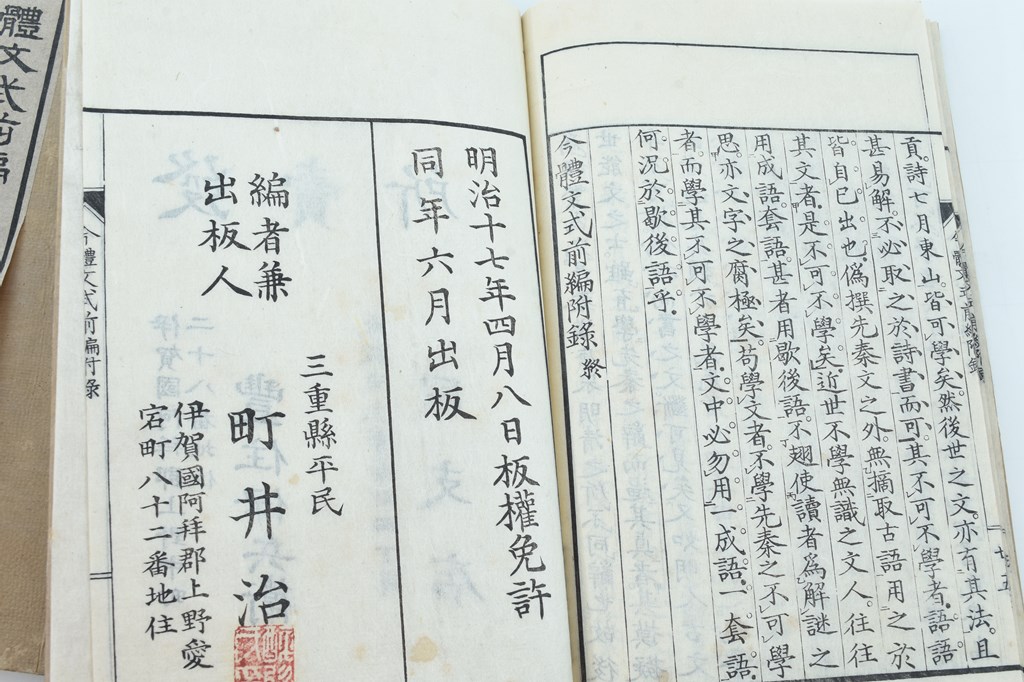 貢詩七月東山皆可學矣然後世之文亦有其法且
甚易解不必取之於詩書而可其不可不學者語語
皆自己出也爲撰先秦文之外無摘取古語用之於
其文者是不可不學矣近世不學無識之文人往往
用成語套語甚者用歇後語不翅使讀者爲解謎之
思亦文字之腐極矣苟學文者不學先秦之不可學
者而學其不可不學者文中必勿用一成語一套語
何況於歇後語乎
今體文式前編附錄終
明治十七年四月八日板權免許
同年六月出板
三重縣平民
編者兼
出板人
町井治
伊賀國阿拜郡上野愛
宕町八十二番地住
今體文式前編附錄
體文式前編